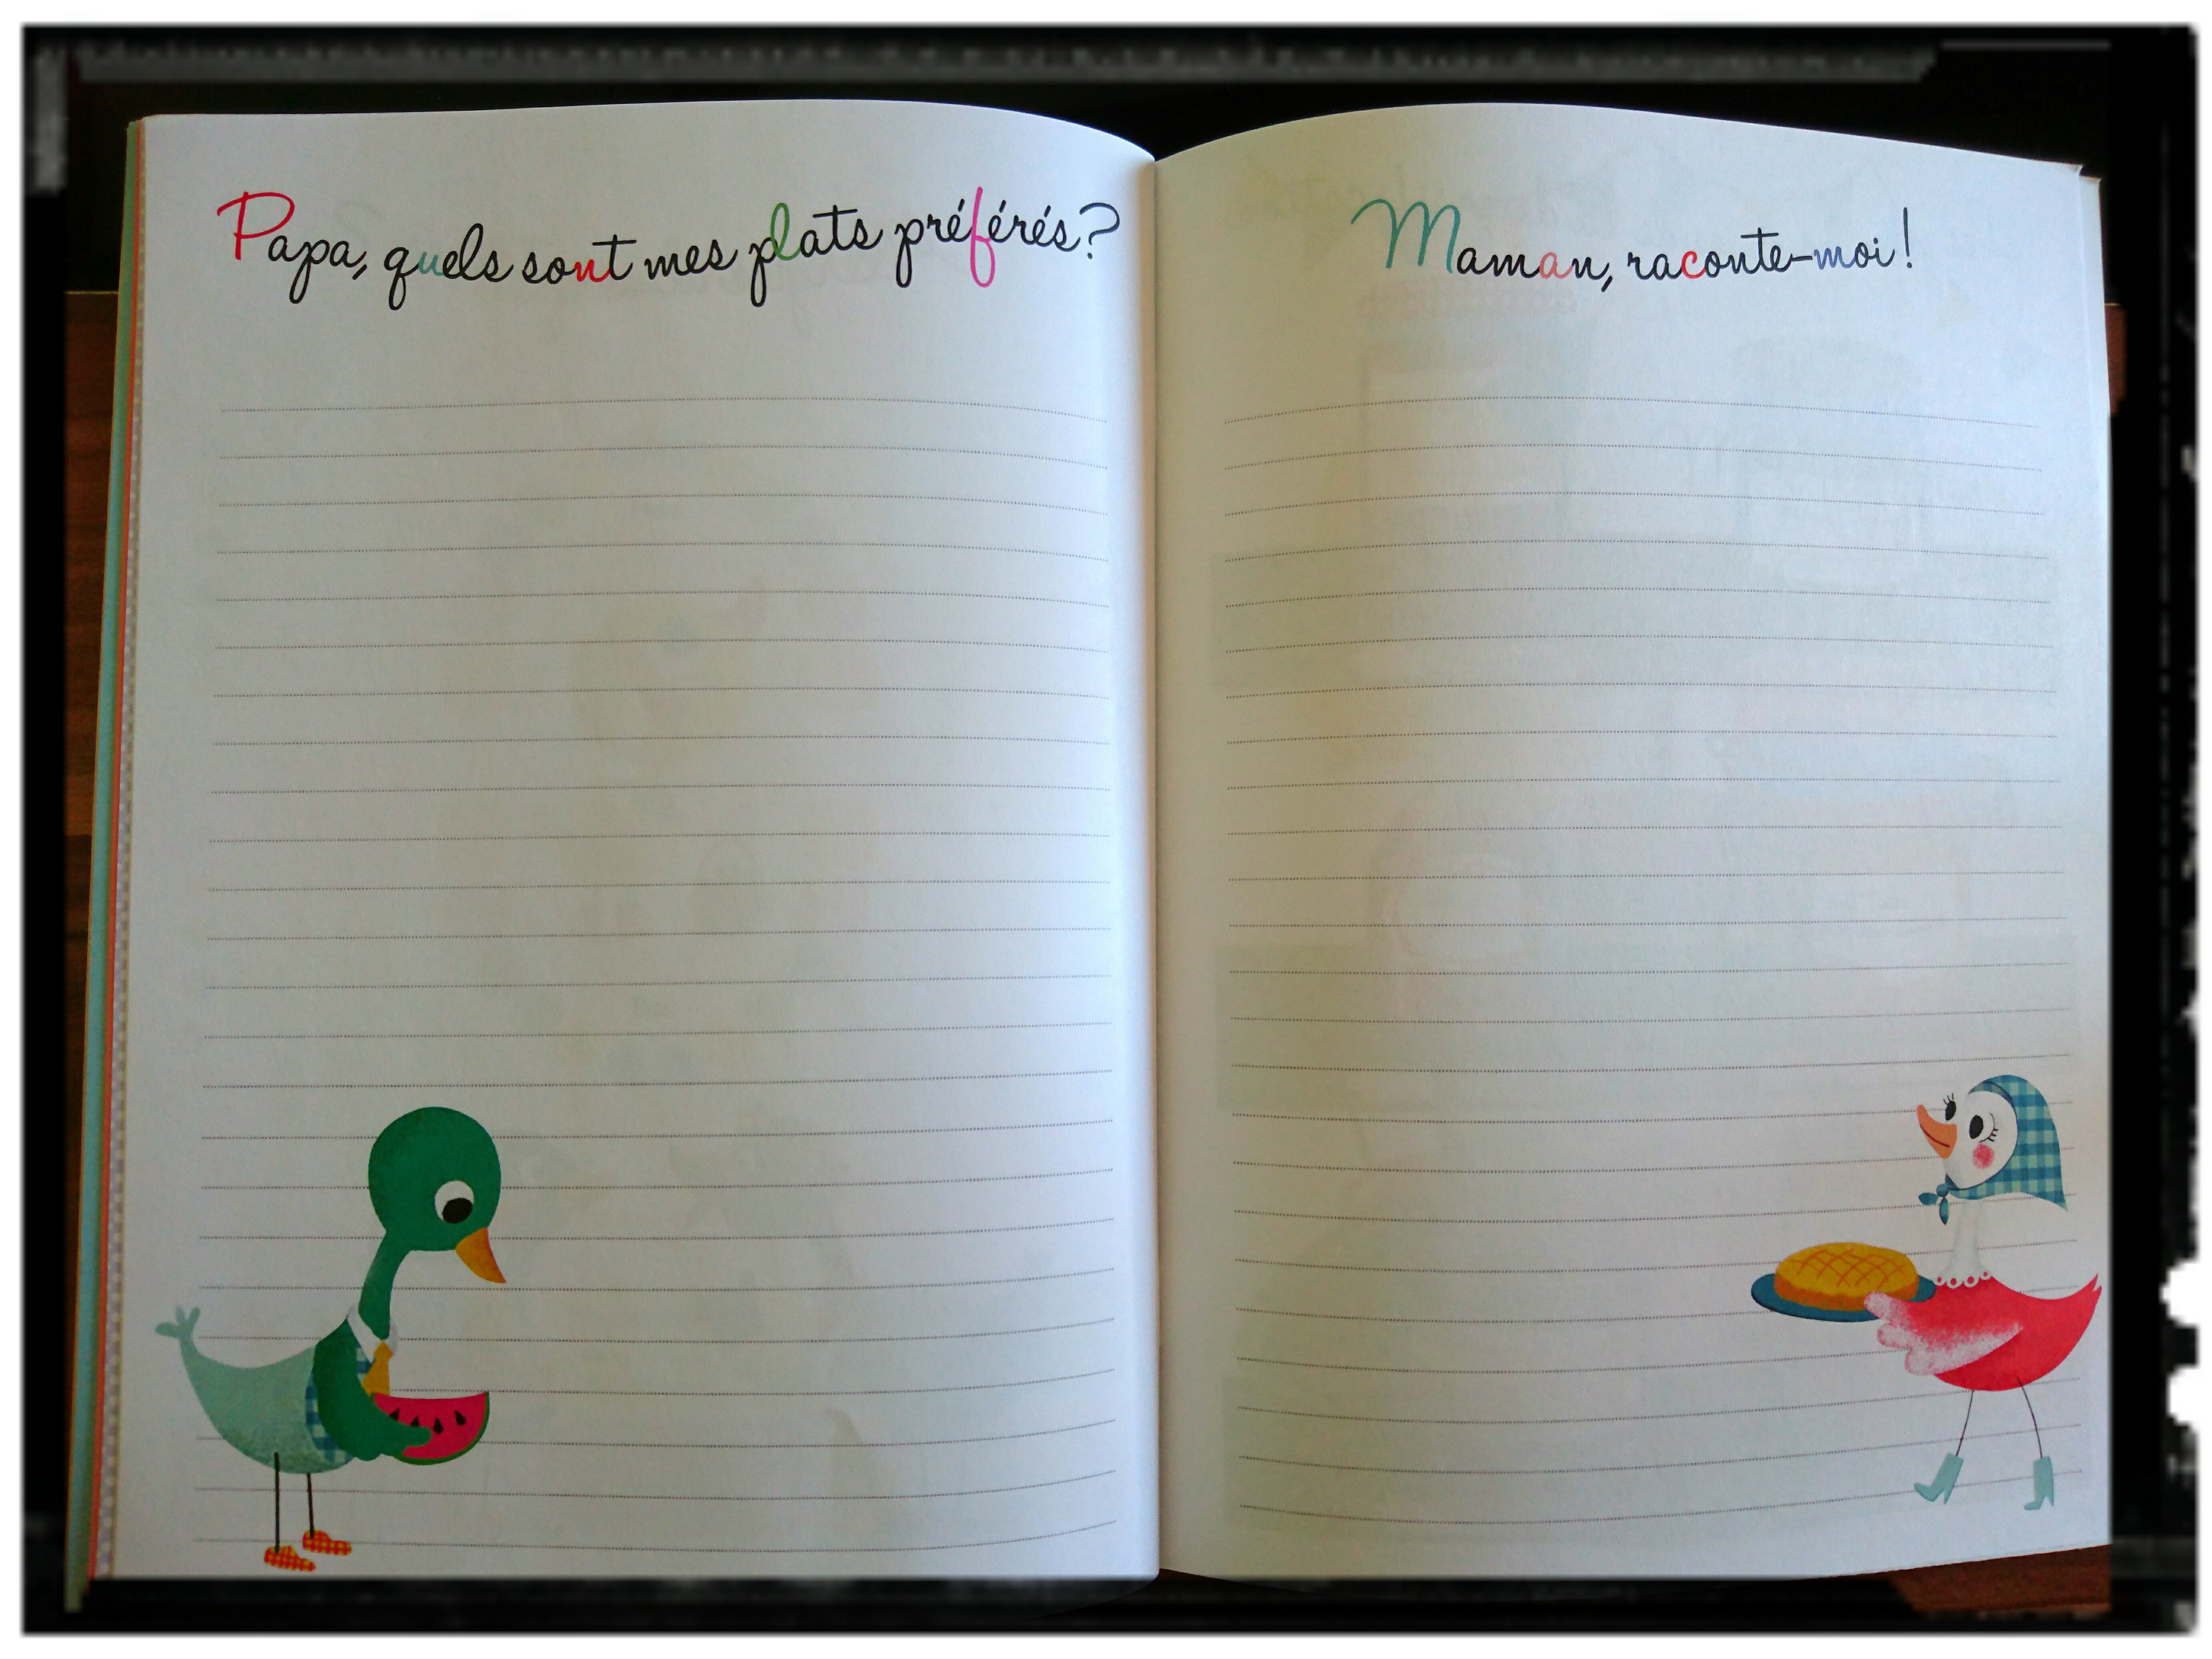 Papa, quels sont mes plats préférés?
Maman, raconte-moi!